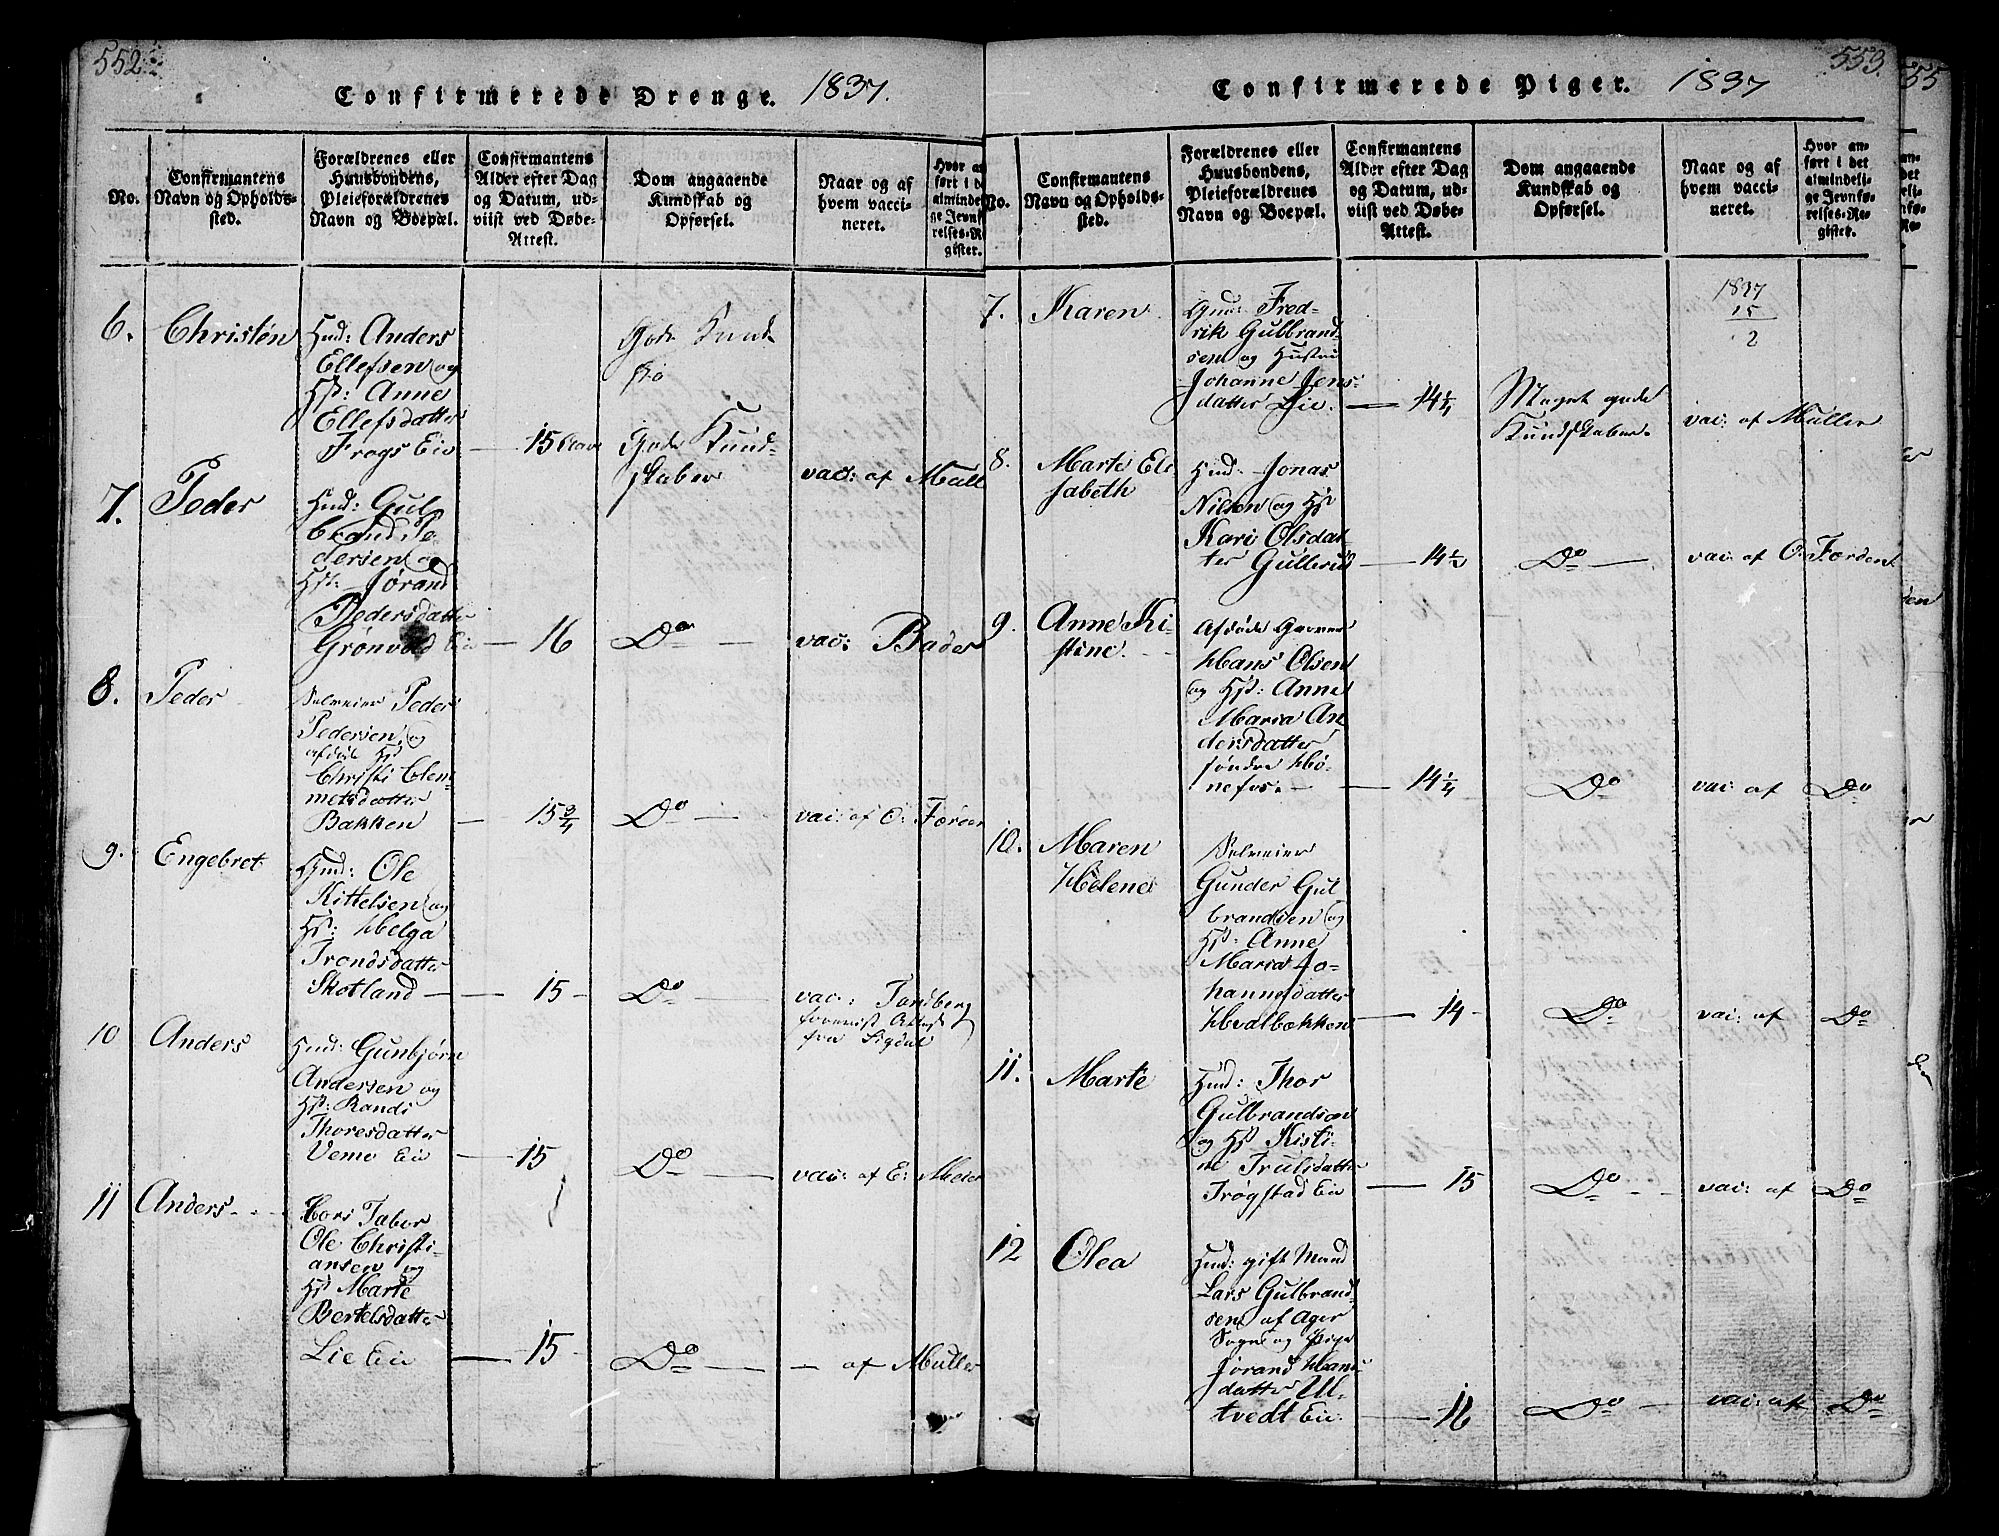 552
Confirmerede Drenge. 1837.
No.
Confirmantens
Navn og Opholds-
sted.
Forældrenes eller
Huusbondens,
Pleieforældrenes
Navn og Boepæl.
Confirmantens
Alder efter Dag
og Datum, ud-
viist ved Døbe-
Attest.
Dom angaaende
Kundskab og
Opførsel.
Naar og af
hvem vacci-
neret.
Hvor an
ført i de
almindel
ge Jevnf
relses-R
gister.
6.
Christen
Hmd: Anders
Ellefsen og
Hst: Anne
Ellefsdatter
Frogs Eie
15
Gode Kund
Gode Kund-
skaber
vac: af Mull
7.
Peder
Hmd: Gul
brand Pe-
dersen og
Hst: Jørand
Pedersdatter
Grønvold Eie
16
Do
vac: Bader
8.
Peder
Selveier Peder
Pedersen og
afdøde Hst
Christi Clem-
metsdatter
Bakken
15 3/4
Do
vac: af O: Førden
9.
Engebret
Hmd: Ole
Kittelsen og
Hst: Helga
Trondsdatter
Skotland
15
Do
vac: Tandberg
foreviist Attest
fra Sigdal
10
Anders
Hmd: Gunbjørn
Andersen og
Hst: Randi
Thoresdatter
Vemo Eie
15
Do
vac: af E: Meier
11
Anders
Cors Tabor
Ole Christi-
ansen og
Hst Marte
Bertelsdatter
Lie Eie
15
Do
af Muller
553.
Confirmerede Piger. 1837
No.
Confirmantens
Navn og Opholds-
sted.
Forældrenes eller
Huusbondens,
Pleieforældrenes
Navn og Boepæl.
Confirmantens
Alder efter Dag
og Datum, ud-
viist ved Døbe-
Attest.
Dom angaaende
Kundskab og
Opførsel.
Naar og af
hvem vacci-
neret.
Hvor an-
ført i det
almindeli-
ge Jevnfø-
relses-Re-
gister.
1837
15
2
7.
Karen
Fred-
rik Gulbrand-
sen og Hustru
Johanne Jens-
datter Lie.
14 1/4
Meget gode
Kundskaber.
vac: af Muller
8.
Marte Eli
sabeth
Hmd: Jonas
Nilsen og Hst
Kari Olsdat-
ter Gullerud
14 1/2
Do
vac: af O. Førden
9.
Anne Ki-
stine
Afdøde Garver
Hans Olsen
og Hst: Anne
Maria An
dersdatter
søndre Hø-
nefos
14 1/4
Do
vac: af Do
10.
Maren
Helene
Selveier
Gunder Gul
brandsen og
Hst: Anne
Maria Jo-
hannesdatter
Hvalbakken
14
Do
vac: af Do
11.
Marte
Hmd: Thor
Gulbrandsen
og Hst Kisti-
ne Trulsdatter
Trøgstad Eie
15
Do
vac: af Do
12
Olea
Hmd: gift Mand
Lars Gulbrand-
sen af Ager
Sogn og Pige
Jørand Hans-
datter Ul-
tvedt Eie
16
Do
vac: af Do
55